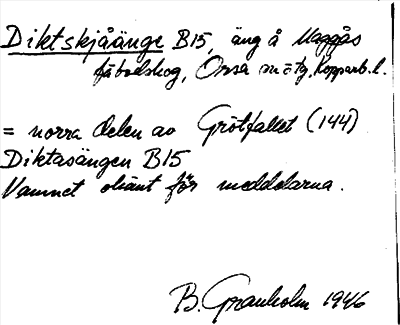 Diktskjåänge B15, äng å Maggås
fäbodskog, Orsa sn o tg, Kopparb. l.
= norra delen av Grötfallet (144)
Diktasängen B15
Namnet okänt för meddelarna.
B. Granholm 1946